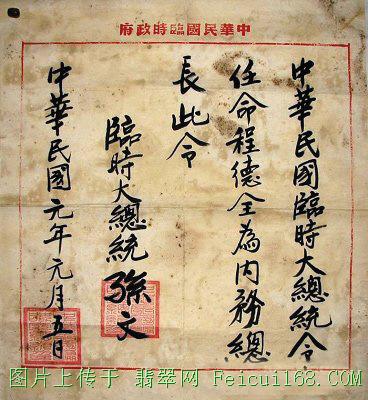 中華民國臨時政府
中華民國臨時大總統令
任命程德全為內務總
長此令
臨時大總統孫文
中華民國元年元月五日
图片上传于 翡翠网 Feicui168.COM